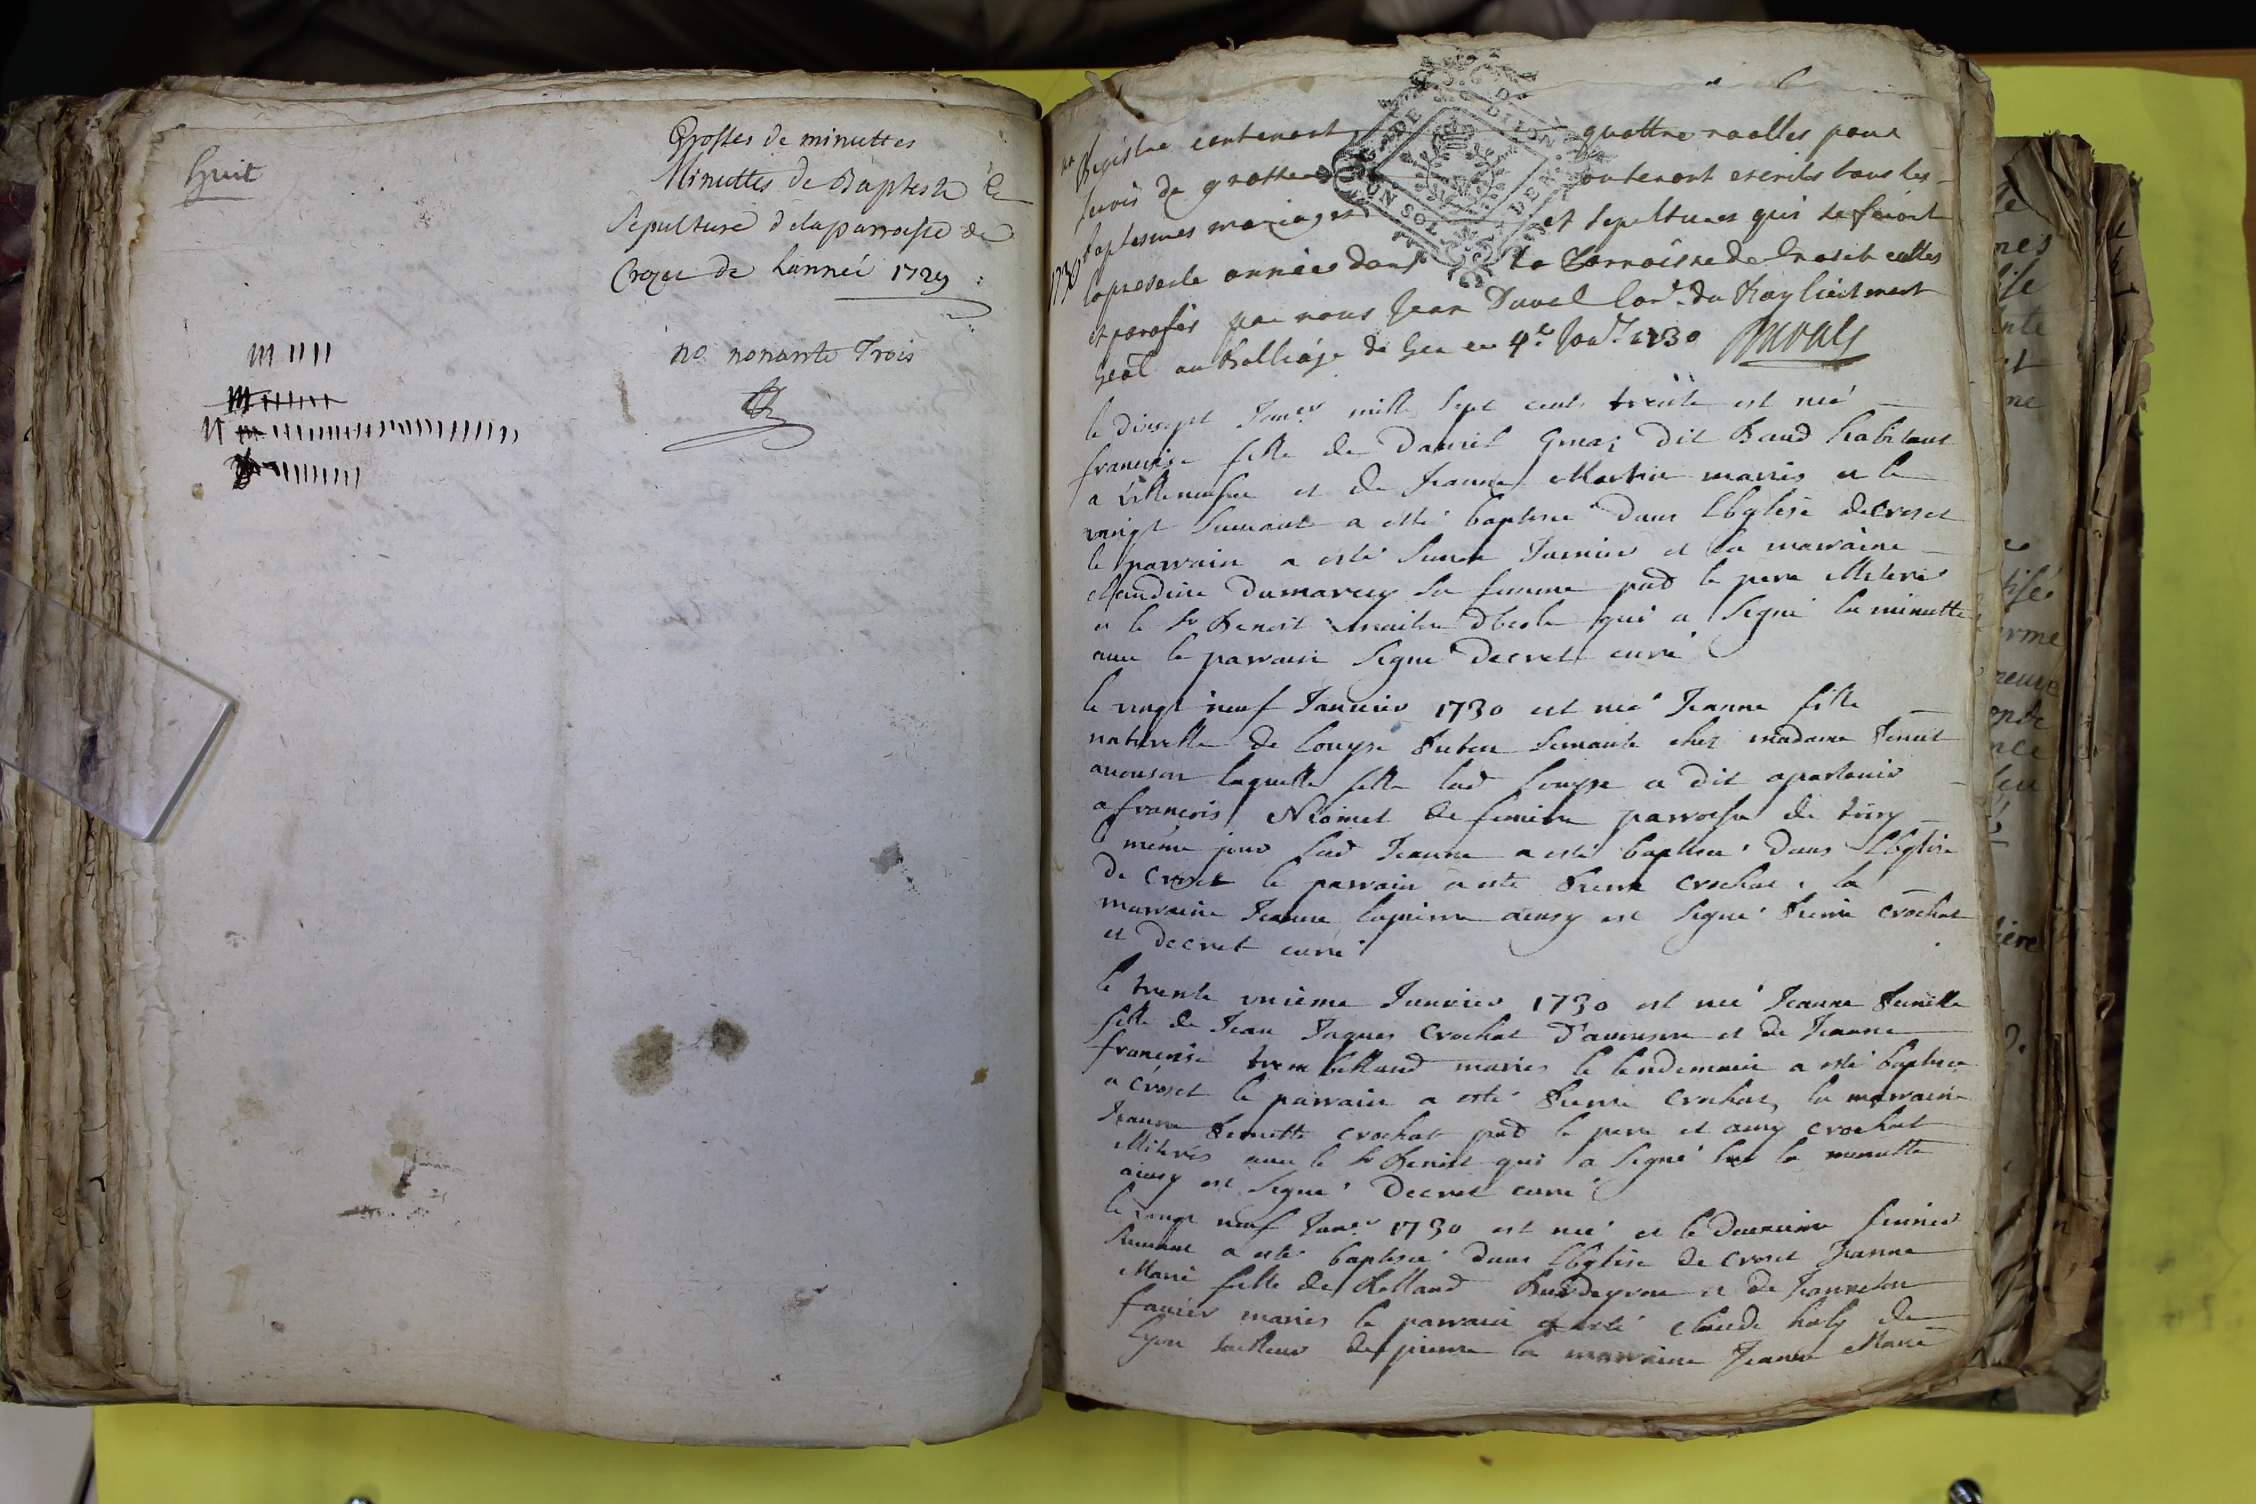 huit
Grosses de minuttes
Minuttes de Baptesme &
Sepulture de la parroisse de
Crozet de Lannée 1729
no nonante Trois
Registre contenant quattre roolles pour
servir de grosse contenant escrits tous les
baptesmes mariages et sepultures qui se feront
1730
la presente année dans la Parroisse de Croset cottes
et parafés par nous Jean Duval Con.er du Roy Lieutenant
Gen̄al au Balliage de Gex ce 4.e Jan.r 1730 Duval
DIJON
UN SOL
le dixsept Jan.er mille sept cents trente est neé
françoise fille de Daniel Gros dit Baud habitant
a villeneufve et de Jeanne Martin mariés et le
vingt suivant a esté baptisée dans l'Eglise de Croset
le parrain a esté Simon Fournier et la marraine
Claudine Dumarest sa femme pnt le pere illiteré
et le Sr Benoit maitre d'Escole qui a signé la minutte
avec le parrain signé Decret curé
le vingt neuf Janvier 1730 est neé Jeanne fille
naturelle de Louyse servante chez madame
avouson laquelle fille lad Louyse a dit apartenir
a françois de parroisse de toiry
le même jour lad Jeanne a esté baptisée dans l'Eglise
de Croset le parrain a esté Pierre Crochat, la
marraine Jeanne Lapierre ainsy est signé Pierre Crochat
et Decret curé
le trente unième Janvier 1730 est neé Jeanne Pernette
fille de Jean Jaques Crochat d'avouson et de Jeanne
françoise trembelland mariés le lendemain a esté baptisée
a Croset le parrain a esté Pierre Crochat, la marraine
Jeanne Pernette Crochat pnt le pere et amy Crochat
illiterés avec le Sr Benoit qui a signé sur la minutte
ainsy est signé Decret curé
le vingt neuf Jan.er 1730 est neé et le deuxieme fevrier
suivant a esté baptisée dans l'Eglise de Croset Jeanne
Marie fille de Rolland Burdeyron et de Jeanneton
mariés le parrain a esté Claude de
Lyon tailleur de pierre la marraine Jeanne Marie